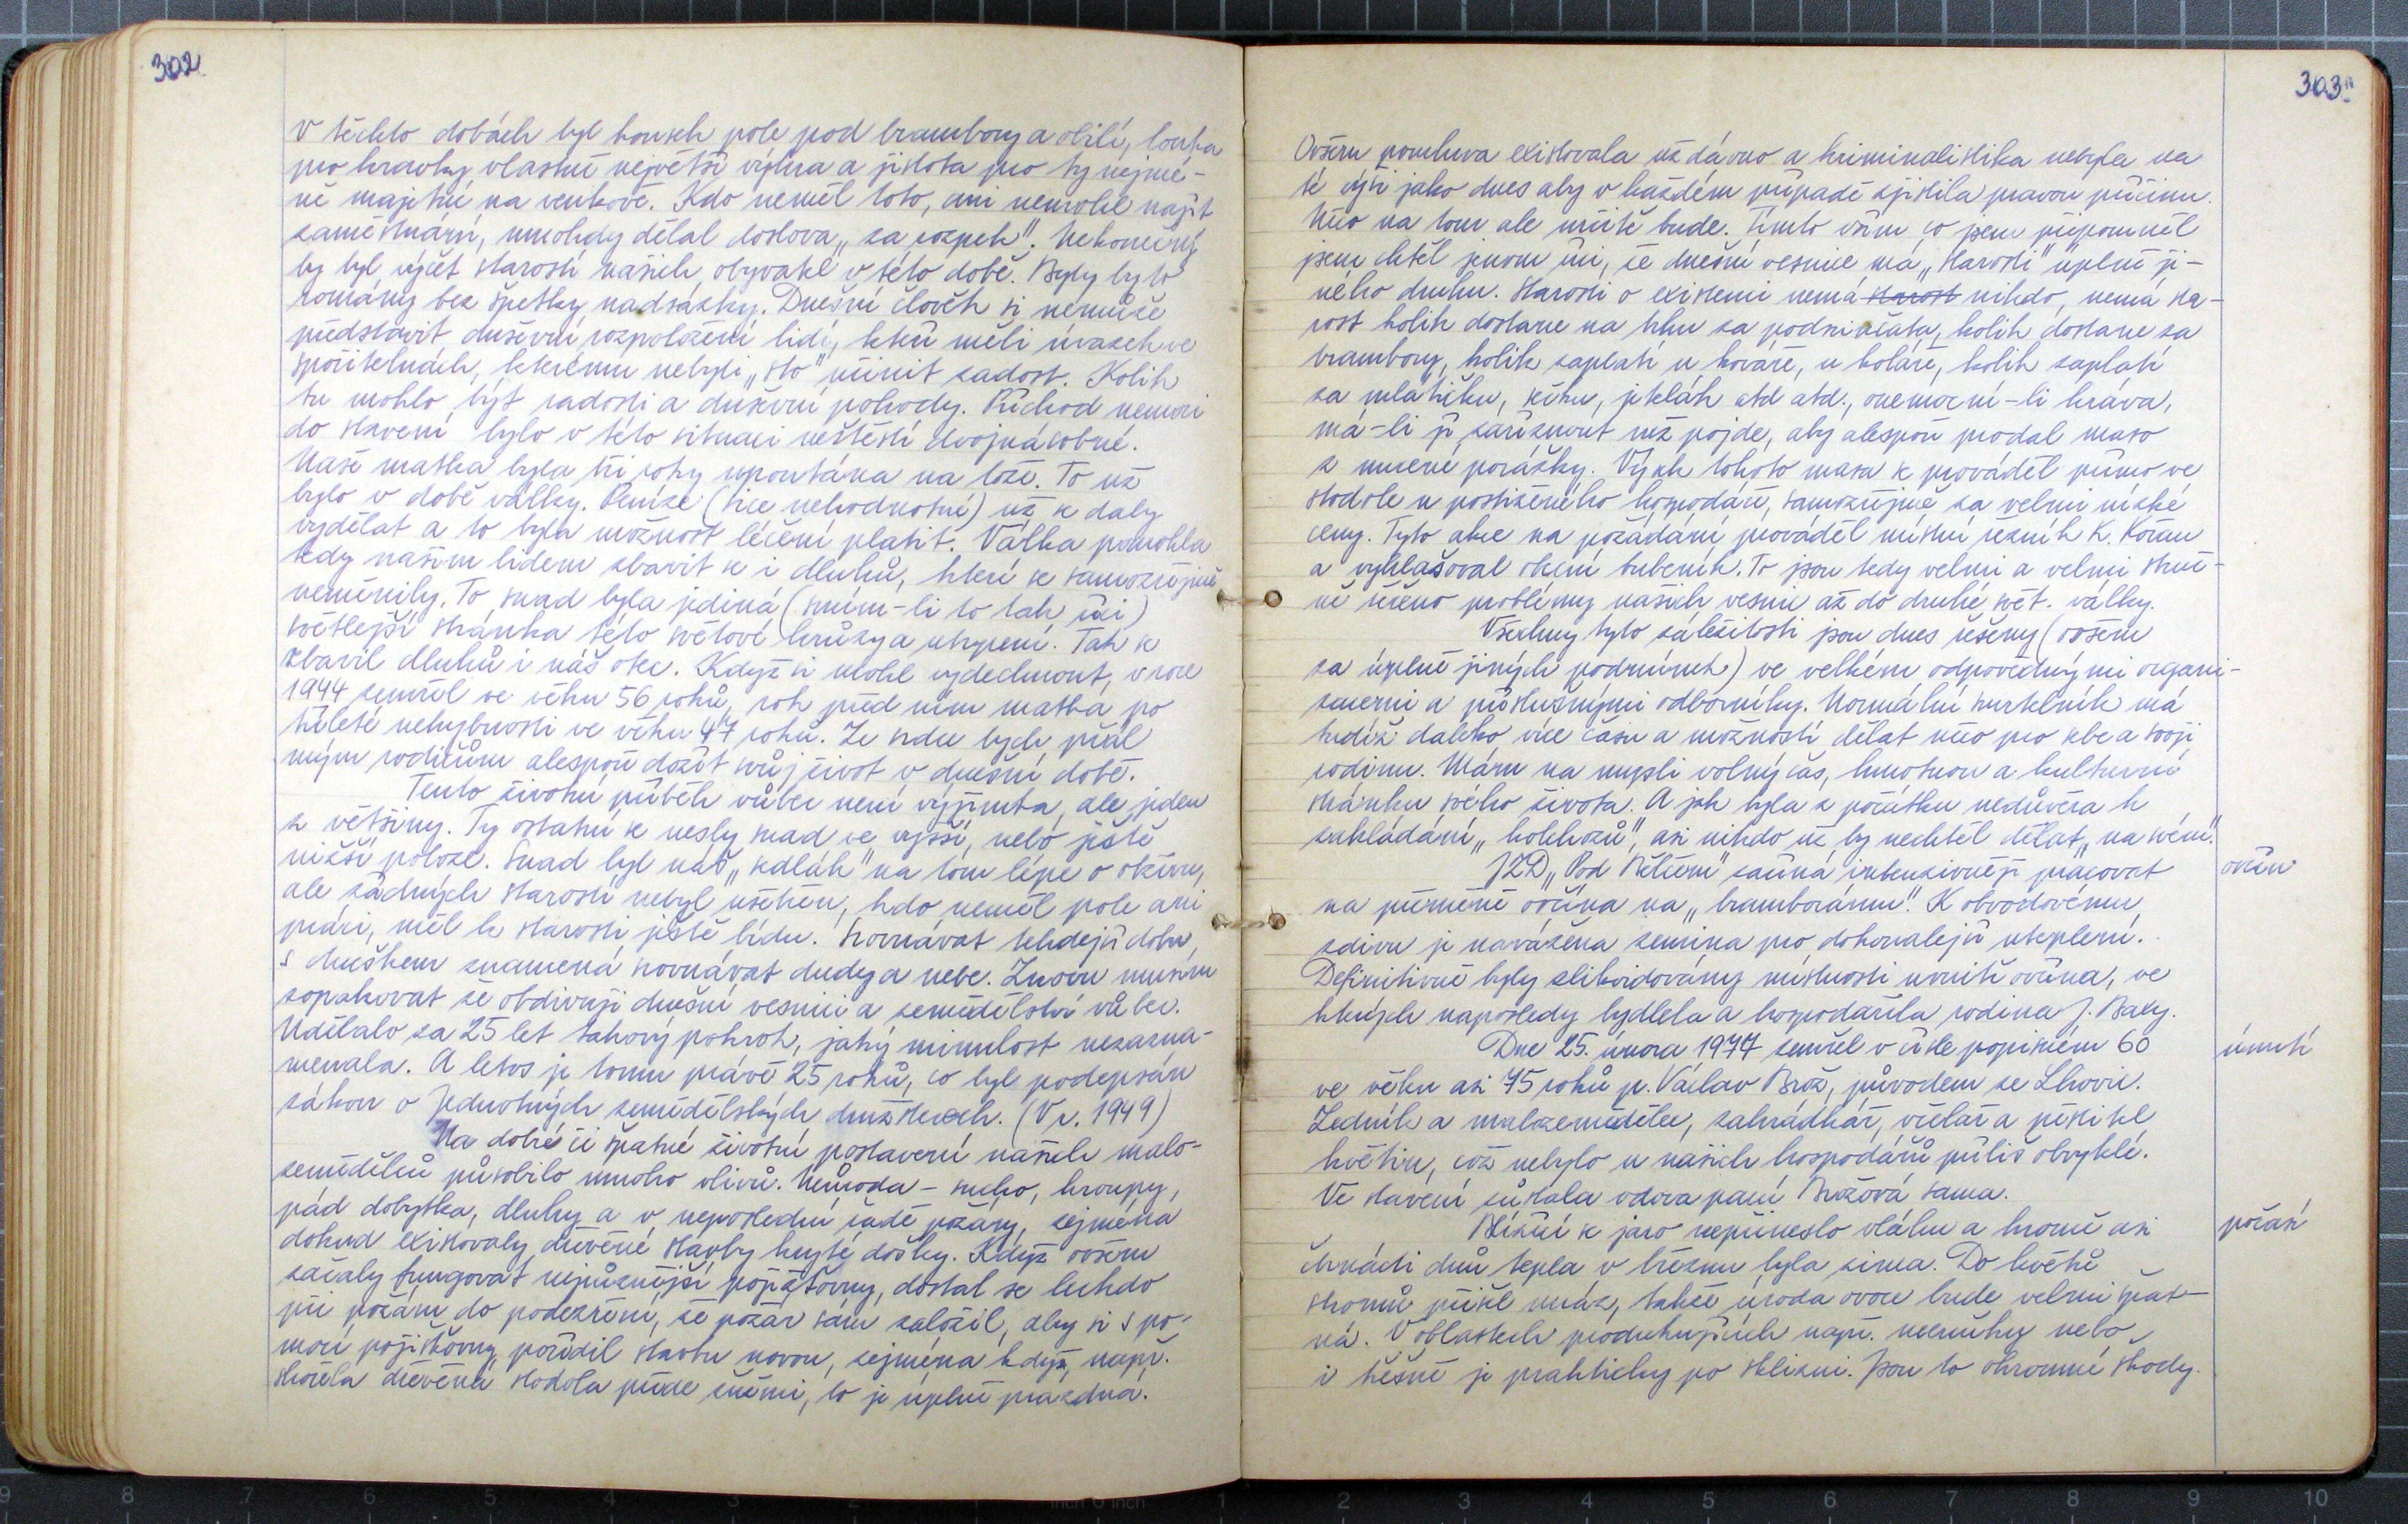 302
V těchto dobách byl kousek pole pod brambory a obilí, louka
pro kravky vlastně největší výhra a jistota pro ty nejmé-
ně majetné na venkově. Kdo neměl toto, ani nemohl najít
zaměstnání, mnohdy dělal doslova „za rozpek". Nekonečný
by byl výčet starostí našich obyvatel v této době. Byly by to
romány bez špetky nadsázky. Dnešní člověk si nemůže
představit duševní rozpoložení lidí, kteří měli úvazek ve
spořitelnách, kterému nebyli „sto" učinit zadost. Kolik
tu mohlo být radosti a duševní pohody. Příchod nemoci
do stavení bylo v této situaci neštěstí dvojnásobné.
Naše matka byla tři roky upoutána na lože. To už
bylo v době války. Peníze (sice nehodnotné) už se daly
vydělat a to byla možnost léčení platit. Válka pomohla
tedy našim lidem zbavit se i dluhů, které se samozřejmě
neměnily. To snad byla jediná (smím-li to tak říci)
světlejší stránka této světové hrůzy a utrpení. Tak se
zbavil dluhů i náš otec. Když si mohl vydechnout, v roce
1944 zemřel ve věku 56 roků, rok před ním matka po
tříleté nehybnosti ve věku 47 roků. Ze srdce bych přál
mým rodičům alespoň dožít svůj život v dnešní době.
Tento životní příběh vůbec není výjimka, ale jeden
z většiny. Ty ostatní se nesly snad ve vyšší, nebo ještě
nižší poloze. Snad byl náš „sedlák" na tom lépe o obživu,
ale žádných starostí nebyl ušetřen, kdo neměl pole ani
práci, měl k starosti ještě bídu. Srovnávat tehdejší dobu
s dneškem znamená srovnávat dudy a nebe. Znovu musím
zopakovat že obdivuji dnešní vesnici a zemědělství vůbec.
Udělalo za 25 let takový pokrok, jaký minulost nezazna-
menala. A letos je tomu právě 25 roků, co byl podepsán
zákon o Jednotných zemědělských družstvech. (V r. 1949)
Na dobré či špatné životní postavení našich malo-
zemědělců působilo mnoho vlivů. Neúroda - sucho, kroupy,
pád dobytka, dluhy a v neposlední řadě požáry, zejména
dokud existovaly dřevěné stavby kryté došky. Když ovšem
začaly fungovat nejrůznější pojišťovny, dostal se leckdo
při požáru do podezření, že požár sám založil, aby si s po-
mocí pojišťovny pořídil stavbu novou, zejména když, např.
shořela dřevěná stodola přede žněmi, to je úplně prazdná.
303
Ovšem pomluva existovala už dávno a kriminalistika nebyla na
té výši jako dnes aby v každém případě zjistila pravou příčinu.
Něco na tom ale určitě bude. Tímto vším co jsem připomněl
jsem chtěl jenom říci, že dnešní vesnice má „starosti" úplně ji-
ného druhu. Starosti o existenci nemá starost nikdo, nemá sta-
rost kolik dostane na trhu za podsvinčata, kolik dostane za
brambory, kolik zaplatí u kováře, u koláře, kolik zaplatí
za mlátičku, sečku, jetelák atd atd., onemocní-li kráva,
má-li ji zaříznout než pojde, aby alespoň prodal maso
z nucené porážky. Výsek tohoto masa se prováděl přímo ve
stodole u postiženého hospodáře, samozřejmě za velmi nízké
ceny. Tyto akce na požádání prováděl místní řezník K. Kořán
a vyhlašoval obecní bubeník. To jsou tedy velmi a velmi struč-
ně řečeno problémy našich vesnic až do druhé svět. války.
Všechny tyto záležitosti jsou dnes řešeny (ovšem
za úplně jiných podmínek) ve velkém odpovědnými organi-
zacemi a příslušnými odborníky. Normální smrtelník má
tudíž daleko více času a možností dělat něco pro sebe a svoji
rodinu. Mám na mysli volný čas, hmotnou a kulturní
stránku svého života. A jak byla z počátku nedůvěra k
zakládání „kolchozů", asi nikdo už by nechtěl dělat „na svém".
JZD „Pod Bělčem" začíná intenzivněji pracovat
ovčín
na přeměně ovčína na „bramborárnu". K obvodovému
zdivu je navážena zemina pro dokonalejší uteplení.
Definitivně byly zlikvidovány místnosti uvnitř ovčína, ve
kterých naposledy bydlela a hospodařila rodina J. Baxy.
Dne 25. února 1974 zemřel v čísle popisném 60
úmrtí
ve věku asi 75 roků p. Václav Brož, původem ze Lhovic.
Zedník a malozemědělec, zahrádkář, včelař a pěstitel
květin, což nebylo u našich hospodářů příliš obvyklé.
Ve stavení zůstala vdova paní Brožová sama.
Blížící se jaro nepřineslo vláhu a kromě asi
počasí
čtrnácti dnů tepla v březnu byla zima. Do květů
stromů přišel mráz, takže úroda ovoce bude velmi špat-
ná. V oblastech produkujících např. meruňky nebo
i třešně je prakticky po sklizni. Jsou to ohromné škody.